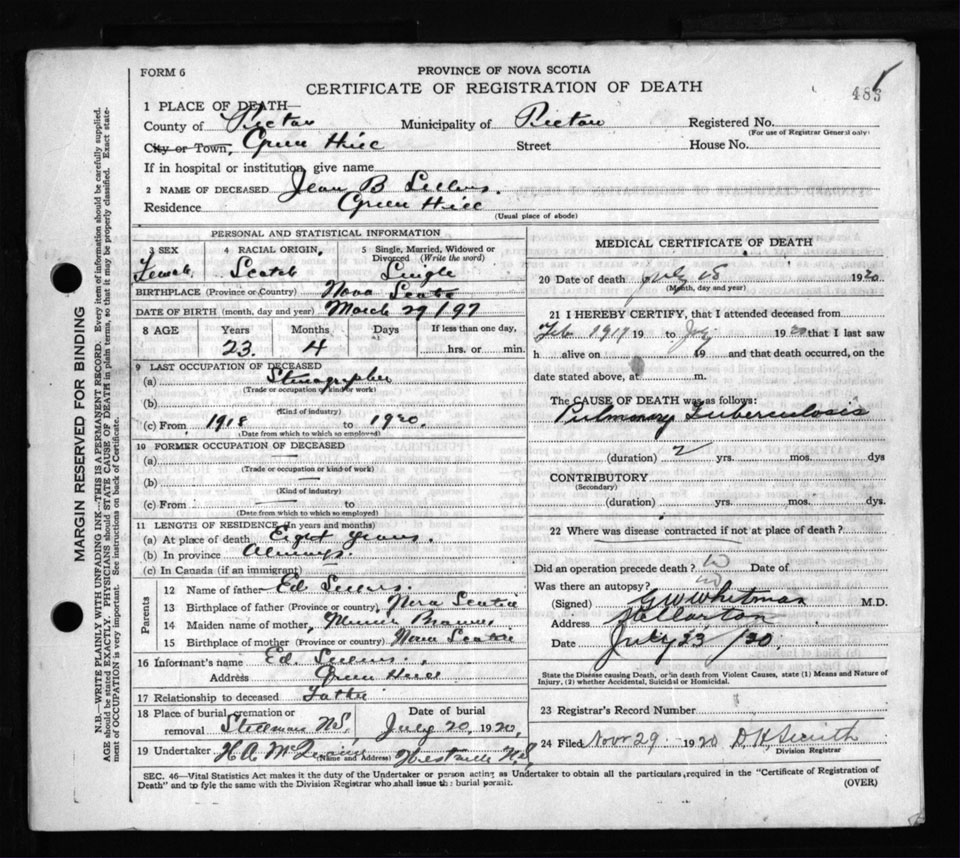 FORM 6
PROVINCE OF NOVA SCOTIA
CERTIFICATE OF REGISTRATION OF DEATH
483
1 PLACE OF DEATH—
County of Pictou Municipality of Pictou Registered No.
(For use of Registrar General only)
City or Town, Green Hill Street House No.
If in hospital or institution, give name
2 NAME OF DECEASED Jean B Sellers.
Residence Green Hill
(Usual place of abode)
PERSONAL AND STATISTICAL INFORMATION
3 SEX 4 RACIAL ORIGIN, 5 Single, Married, Widowed or Divorced (Write the word)
Female Scotch Single
BIRTHPLACE (Province or Country) Nova Scotia
DATE OF BIRTH (month, day and year) March 29/97
8 AGE Years Months Days If less than one day,
23. 4 hrs. or min.
9 LAST OCCUPATION OF DECEASED
(a) Stenographer
(Trade or occupation or kind of work)
(b)
(Kind of industry)
(c) From 1918 to 1920.
(Date from which to which so employed)
10 FORMER OCCUPATION OF DECEASED
(a) —
(Trade or occupation or kind of work)
(b) —
(Kind of industry)
(c) From — to
(Date from which to which so employed)
11 LENGTH OF RESIDENCE (In years and months)
(a) At place of death Eight years.
(b) In province Always.
(c) In Canada (if an immigrant) —
Parents
12 Name of father Ed Sellers.
13 Birthplace of father (Province or country) Nova Scotia
14 Maiden name of mother,
15 Birthplace of mother (Province or country) Nova Scotia
16 Informant's name Ed. Sellers.
Address Green Hill
17 Relationship to deceased Father
18 Place of burial, cremation or removal N.S. Date of burial July 20, 1920,
19 Undertaker H A (Name and Address) Westville N.S.
MEDICAL CERTIFICATE OF DEATH
20 Date of death July 18 1920
(Month, day and year)
21 I HEREBY CERTIFY, that I attended deceased from
Feb 1919 19 to July 1920 that I last saw
h alive on 19 and that death occurred, on the
date stated above, at m.
The CAUSE OF DEATH was as follows:
Pulmonary Tuberculosis
(duration) 2 yrs. mos. dys
CONTRIBUTORY
(Secondary)
(duration) yrs. mos. dys.
22 Where was disease contracted if not at place of death?
Did an operation precede death? no Date of
Was there an autopsy? no
(Signed) G W Whitman M.D.
Address Stellarton
Date July 23/20.
State the Disease causing Death, or in death from Violent Causes, state (1) Means and Nature
of Injury, (2) whether Accidental, Suicidal or Homicidal.
23 Registrar's Record Number
24 Filed Novr 29 1920 D K Smith
Division Registrar
SEC. 46—Vital Statistics Act makes it the duty of the Undertaker or person acting as Undertaker to obtain all the particulars required in the "Certificate of Registration of
Death" and to fyle the same with the Division Registrar who shall issue the burial permit. (OVER)
MARGIN RESERVED FOR BINDING
N.B.—WRITE PLAINLY WITH UNFADING INK—THIS IS A PERMANENT RECORD. Every item of information should be carefully supplied.
AGE should be stated EXACTLY. PHYSICIANS should STATE CAUSE OF DEATH in plain terms, so that it may be properly classified. Exact statement
of OCCUPATION is very important. See instructions on back of Certificate.